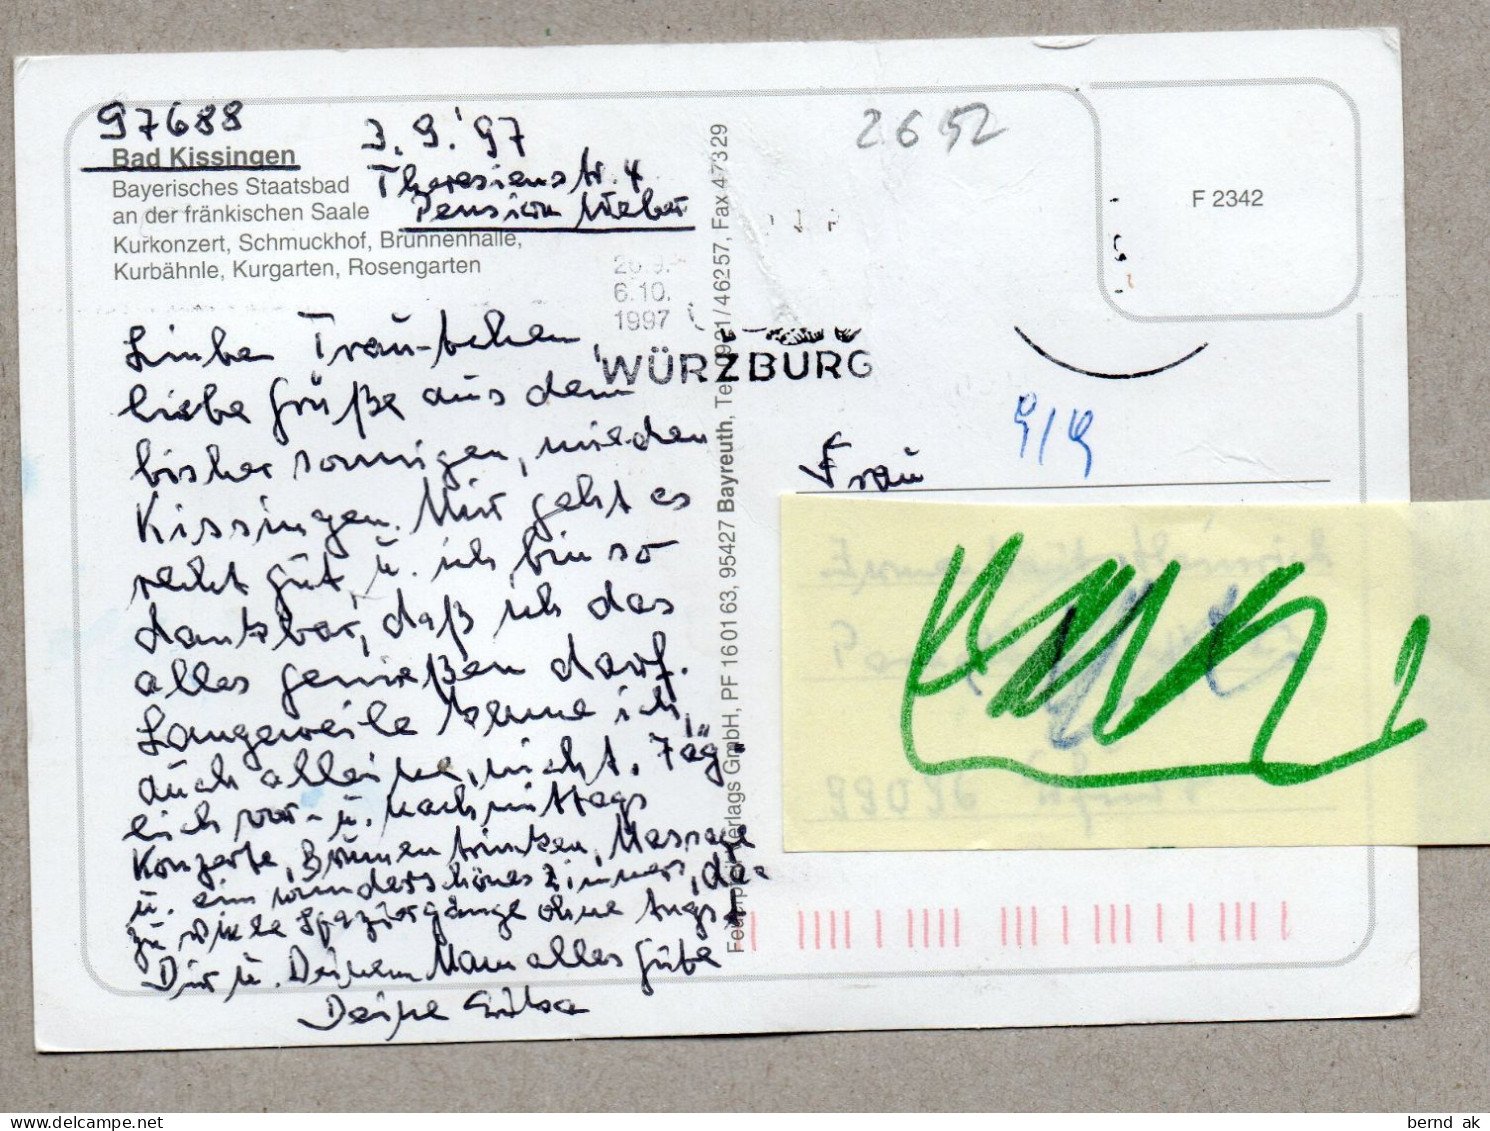 97688
Bad Kissingen
3.9.'97
Bayerisches Staatsbad
Theresienstr. 4
an der fränkischen Saale
Pension Weber
Kurkonzert, Schmuckhof, Brunnenhalle,
Kurbähnle, Kurgarten, Rosengarten
2652
F 2342
6.10.
1997
WÜRZBURG
Trau-
liebe Grüße aus dem
bisher sonnigen, milden
Kissingen. Mir geht es
recht gut, u. ich bin so
dankbar, daß ich das
alles genießen darf.
Langeweile kenne ich,
auch alleine, nicht. Täg-
lich vor- u. nachmittags
Konzerte, Brunnen trinken, Massage
u. ein wunderschönes Zimmer, da-
zu viele Spaziergänge ohne Angst
Dir u. Deinem Mann alles Gute
Deine
Frau
9/9
95427 Bayreuth, PF 160163, Fax 47329
bernd ak